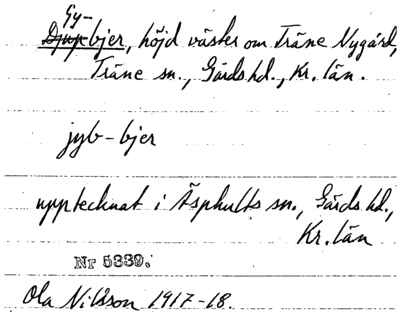 Gy-
Djupbjer, höjd väster om Träne Nygård,
Träne sn., Gärds hd., Kr. län.
jyb-bjer
upptecknat i Äsphults sn., Gärds hd.,
Kr. län
Nr 5339.
Ola Nilsson 1917-18.